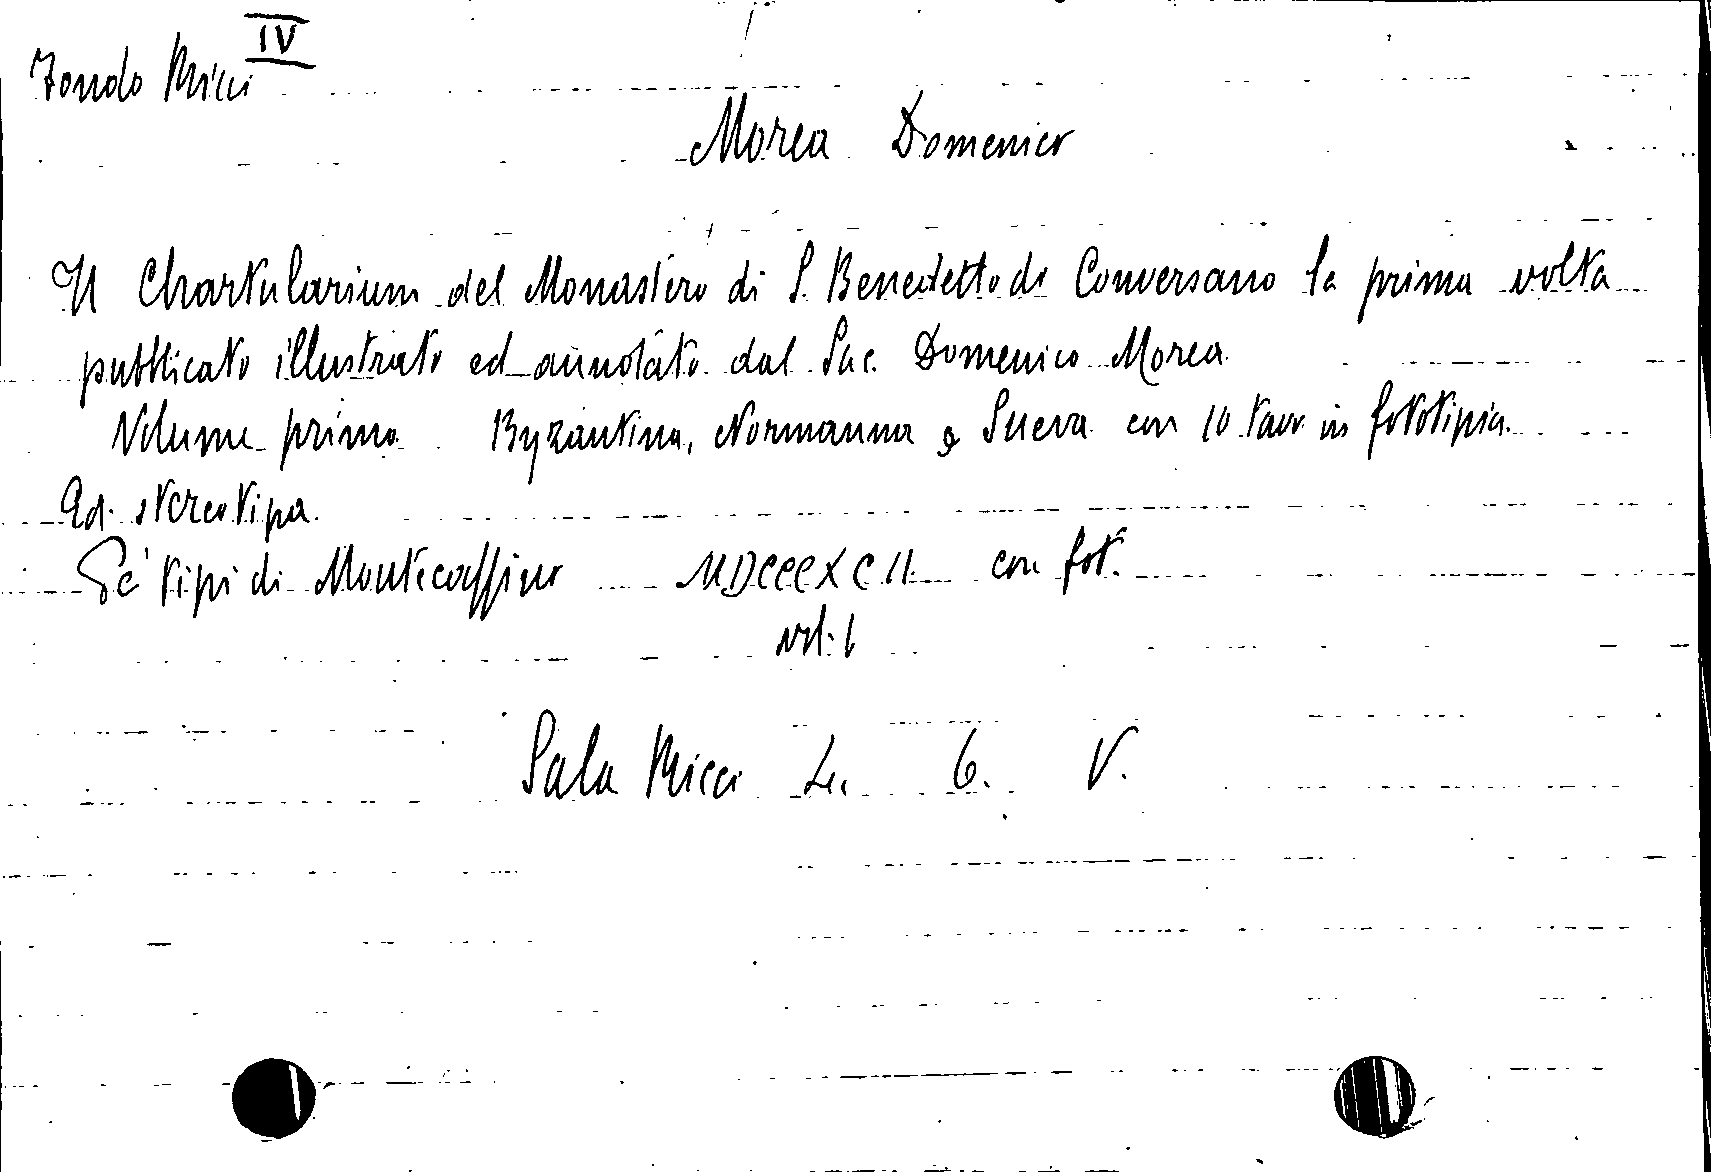 IV
Fondo Ricci
Morea Domenico
Il Chartularium del Monastero di S. Benedetto di Conversano la prima volta
pubblicato illustrato ed annotato dal Sac. Domenico Morea
Volume primo Byzantina, Normanna e Sueva con 10 tavv in fototipia.
Ed. stereotipa.
Pe' tipi di Montecassino MDCCCXCII con fot.
vol: 1
Sala Ricci L. 6. V.